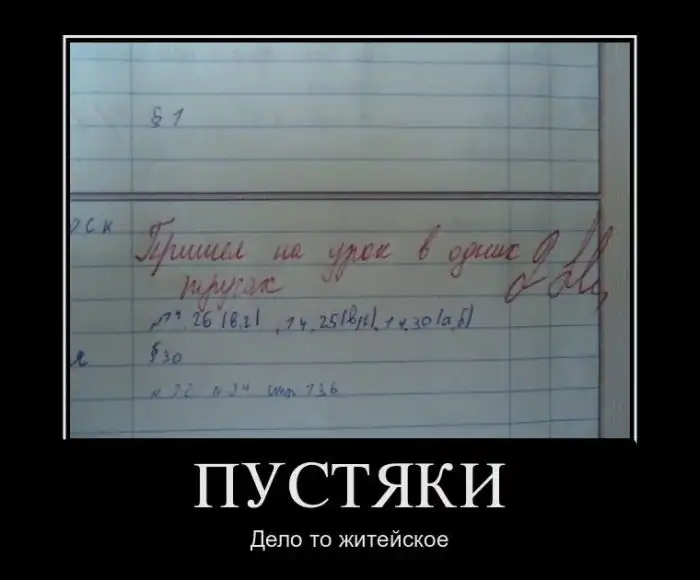 § 1
оск
Пришел на урок в одних 2
трусах
14.26(в,г), 14.25(в,г), 14.30(а,б)
я §30
№22 №24 стр 136
ПУСТЯКИ
Дело то житейское